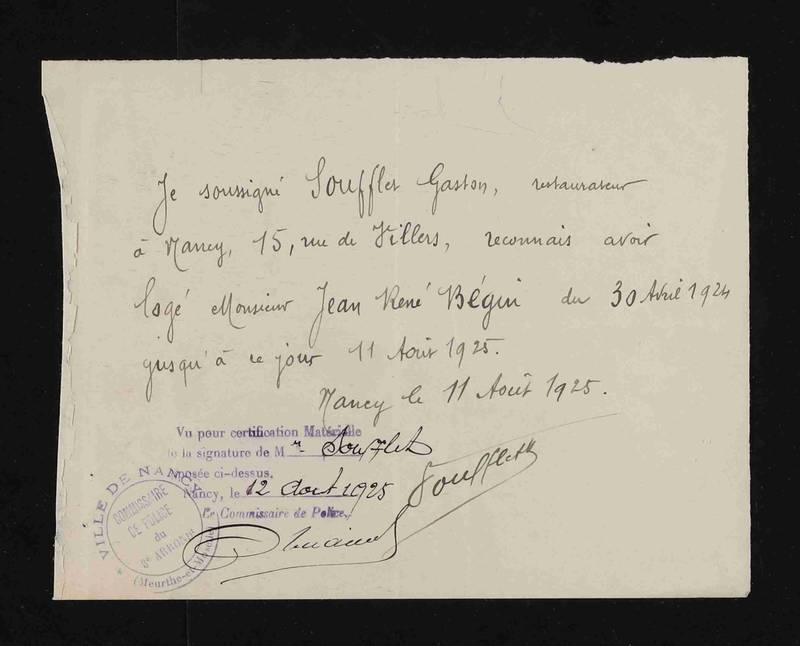 Je soussigné Soufflet Gaston, restaurateur
à Nancy, 15, rue de Villers, reconnais avoir
logé Monsieur Jean René Bégin du 30 Avril 1924
jusqu'à ce jour 11 Août 1925.
Nancy le 11 Août 1925.
Vu pour certification Matérielle
de la signature de M r. Soufflet
apposée ci-dessus.
Nancy, le 12 Aout 1925
Le Commissaire de Police,
Soufflet
VILLE DE NANCY
COMMISSAIRE
DE POLICE
du
8e ARRONDt
(Meurthe-et-Moselle)